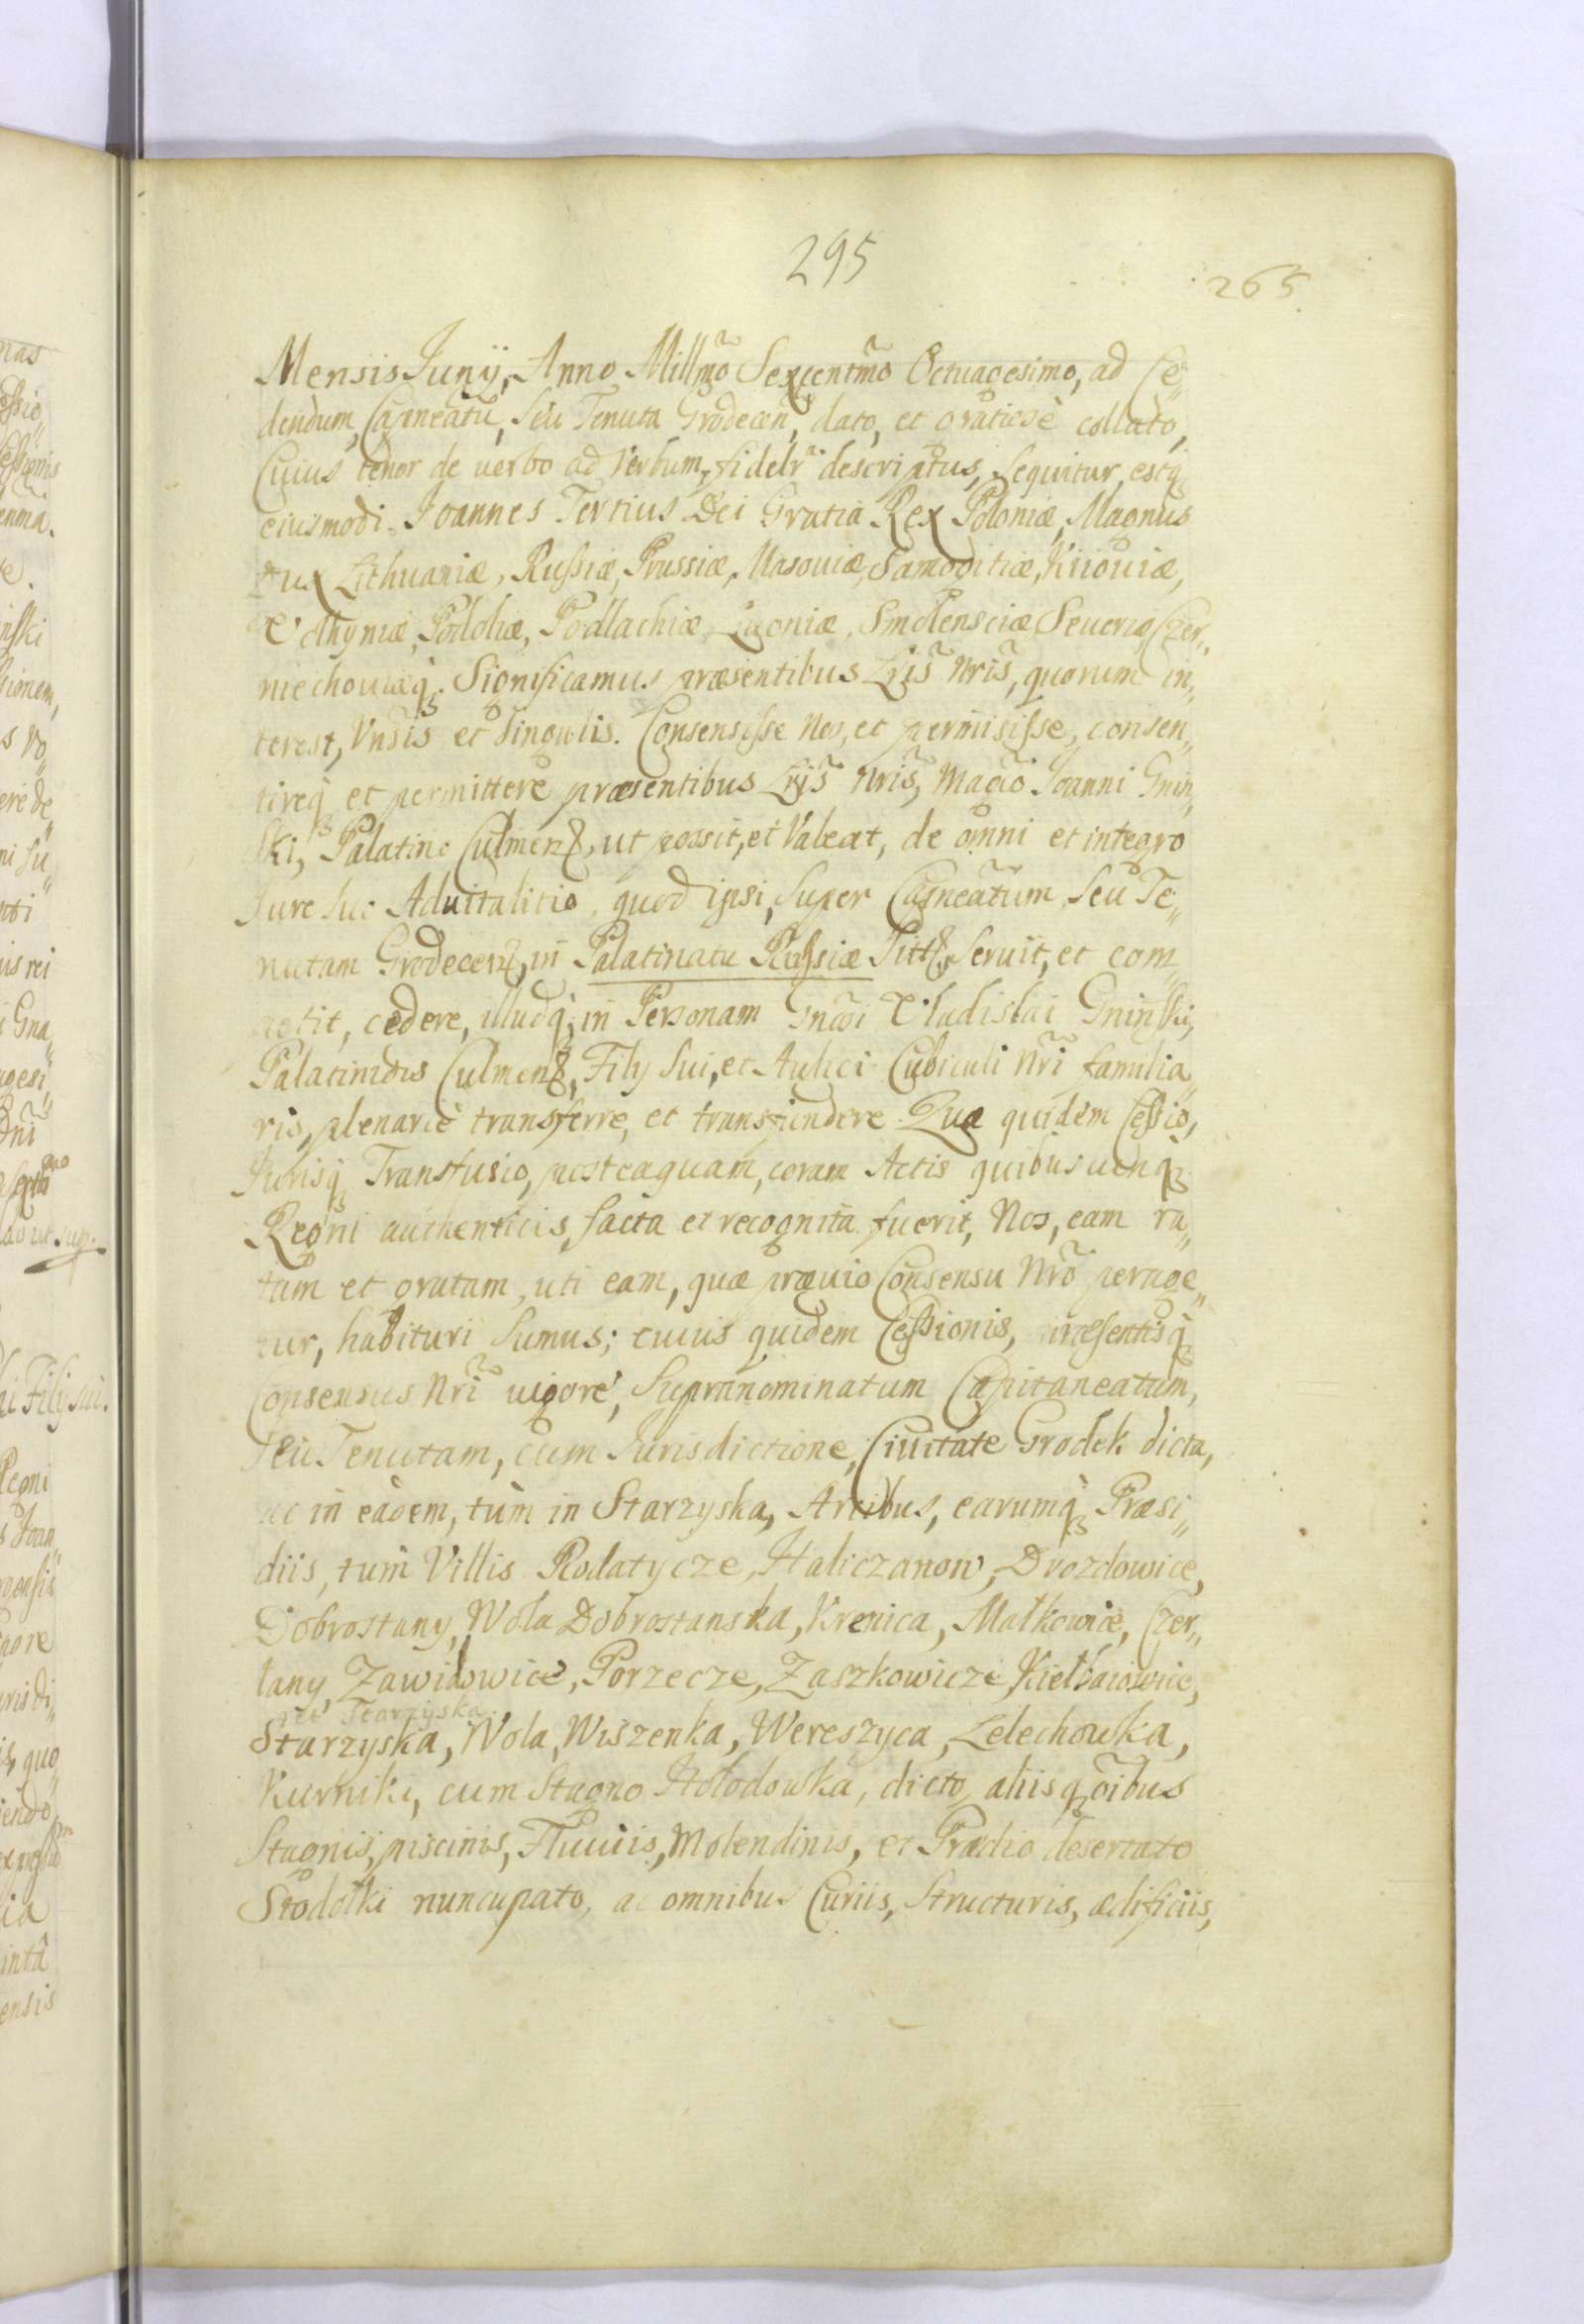 295
265
Mensis Junij, Anno Millmo Sexcentmo Octuagesimo, ad Ce„
dendum, Capneatu, Seu Tenuta Grodecen, dato, et gratiose collato,
Cuius tenor de uerbo ad Verbum, fidelr descriptus, Sequitur, estq
eiusmodi. Joannes Tertius Dei Gratia Rex Poloniæ, Magnus
Dux Lithuaniæ, Russiæ, Prussiæ, Masouiæ, Samogitiæ, Kiiouiæ,
Volhyniæ, Podoliæ, Podlachiæ, Liuoniæ, Smolensciæ Seueriæ Czer„
niechouiæq. Significamus præsentibus Lris Nris, quorum in„
terest, Vnsis et Singulis. Consensisse Nos, et permisisse, consen„
tireq et permittere præsentibus Lris Nris, Magco Joanni Gnin„
ski, Palatino Culmen, ut possit, et Valeat, de omni et integro
Jure Suo Aduitalitio, quod ipsi, Super Capneatum, Seu Te„
nutam Grodecen, in Palatinatu Russiæ Sitt, Seruit, et com„
petit, cedere, illudq, in Personam Gnosi Vladislai Gninski,
Palatinidis Culmen, Filij Sui, et Aulici Cubiculi Nri familia„
ris, plenarie transferre, et transfundere. Quæ quidem Cessio,
Jurisq Transfusio, posteaquam, coram Actis quibusuenq
Regni authenticis, facta et recognita fuerit, Nos, eam ra„
tam et gratam, uti eam, quæ præuio Consensu Nro perage„
tur, habituri Sumus; cuius quidem Cessionis, præsentisq
Consensus Nri uigore, Supranominatum Capitaneatum,
Seu Tenutam, cum Jurisdictione, Ciuitate Grodek dicta,
ac in eadem, tum in Starzyska, Arcibus, earumq Præsi„
diis, tum Villis Rodatycze, Haliczanow, Drozdowice,
Dobrostany, Wola Dobrostanska, Krenica, Małkowice, Czer„
lany, Zawidowice, Porzecze, Zaszkowicze, Kiełbaiowice,
Starzyska
Starzyska, Wola, Wiszenka, Wereszyca, Lelechowka,
Kurniki, cum Stagno Hołodowka, dicto, aliisq oibus
Stagnis, piscinis, Fluuiis, Molendinis, et Prædio desertato
Stodołki nuncupato, ac omnibus Curiis, Structuris, ædificiis,